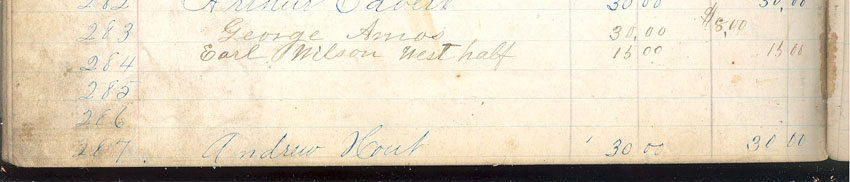 282 Arthur 30.00 30.00
283 George Amos 30.00 $8.00
284 Earl Wilson West half 15 00 15 00
285
286
287 Andrew Hout 30 00 30 00